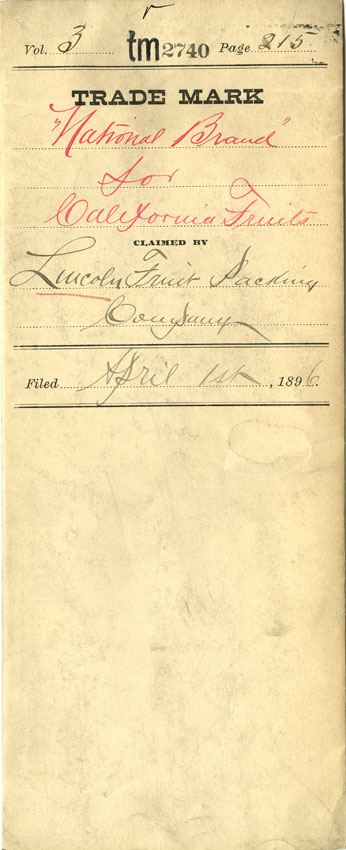 Vol. 3 tm2740 Page 215
TRADE MARK
"National Brand"
for
California Fruits
CLAIMED BY
Lincoln Fruit Packing
Company
Filed April 1st, 1896